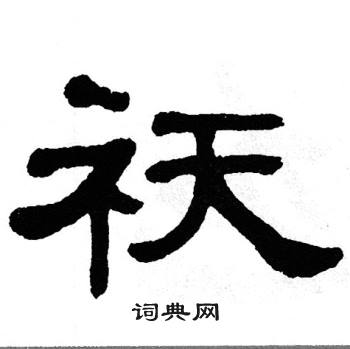 祆
词典网